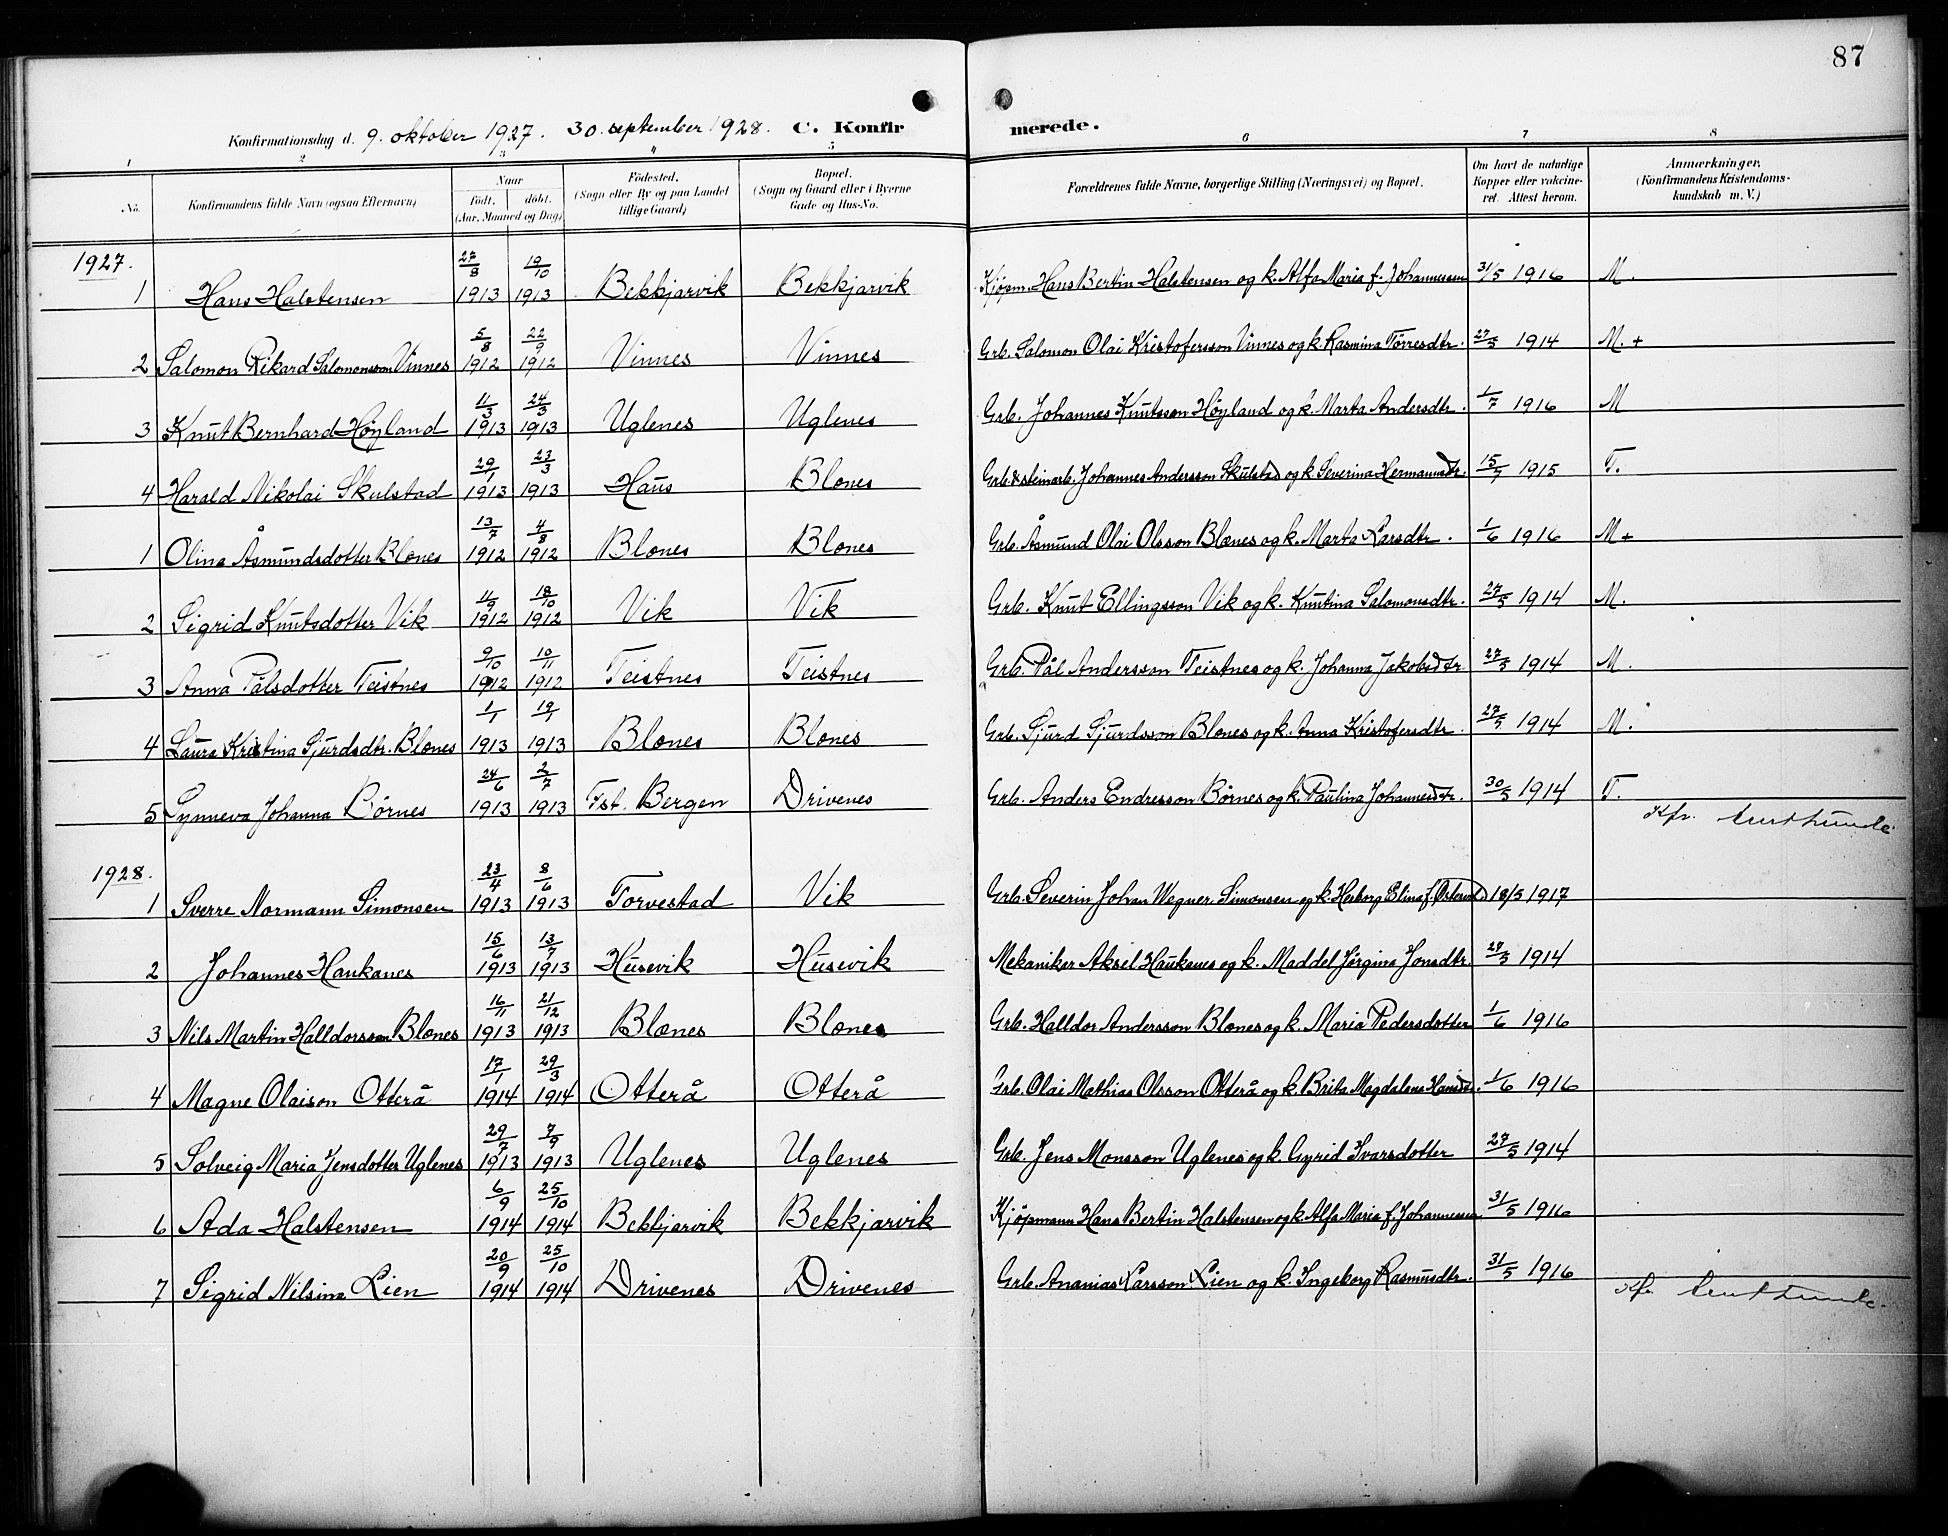 87
Konfirmationsdag d. 9. oktober 1927. 30. september 1928. C. Konfirmerede.
1 2 3 4 5 6 7 8
No. Konfirmandens fulde Navn (ogsaa Efternavn) Naar født. døbt. (Aar, Maaned og Dag) Fødested. (Sogn eller By og paa Landet tillige Gaard) Bopæl. (Sogn og Gaard eller i Byerne Gade og Hus-No. Forældrenes fulde Navne, borgerlige Stilling (Næringsvei) og Bopæl. Om havt de naturlige Kopper eller vakcineret. Attest herom. Anmærkninger. (Konfirmandens Kristendomskundskab m. V.)
1927.
1 Hans Halstensen 27/8 1913 19/10 1913 Bekkjarvik Bekkjarvik Kjøpm. Hans Bertin Halstensen og k. Alfa Maria f. Johannessen 31/5 1916 M.
2 Salomon Rikard Salomonsson Vinnes 5/8 1912 22/9 1912 Vinnes Vinnes Grb. Salomon Olai Kristofersson Vinnes og k. Rasmina Tørresdtr. 27/5 1914 M. +
3 Knut Bernhard Høyland 11/3 1913 24/3 1913 Uglenes Uglenes Grb. Johannes Knutsson Høyland og k. Marta Andersdtr. 1/7 1916 M
4 Harald Nikolai Skulstad 29/1 1913 23/3 1913 Haus Blones Grb. & steinarb. Johannes Andersson Skulstad og k. Severina Hermannsdtr. 15/7 1915 T.
1 Olina Åsmundsdotter Blænes 13/7 1912 4/8 1912 Blænes Blænes Grb. Åsmund Olai Olsson Blænes og k. Marta Larsdtr. 1/6 1916 M +
2 Sigrid Knutsdotter Vik 11/9 1912 18/10 1912 Vik Vik Grb. Knut Ellingsson Vik og k. Knutina Salomonsdtr. 27/5 1914 M.
3 Anna Pålsdotter Teistnes 9/10 1912 10/11 1912 Teistnes Teistnes Grb. Pål Andersson Teistnes og k. Johanna Jakobsdtr 27/5 1914 M.
4 Laura Kristina Sjurdsdtr. Blænes 1/1 1913 19/1 1913 Blænes Blænes Grb. Sjurd Sjurdsson Blænes og k. Anna Kristofersdtr. 27/5 1914 M.
5 Synneva Johanna Børnes 24/6 1913 2/7 1913 Fst. Bergen Drivenes Grb. Anders Endresson Børnes og k. Paulina Johannesdtr. 30/5 1914 T.
Kfr.
1928.
1 Sverre Normann Simonsen 23/4 1913 8/6 1913 Torvestad Vik Grb. Severin Johan Wegner Simonsen og k. Herborg Elina f. 18/5 1917
2 Johannes Haukanes 15/6 1913 13/7 1913 Husevik Husevik Mekaniker Aksel Haukanes og k. Maddel Jørgina Jonsdtr. 27/5 1914
3 Nils Martin Halldorsson Blænes 16/11 1913 21/12 1913 Blænes Blænes Grb. Halldor Andersson Blænes og k. Maria Pedersdotter 1/6 1916
4 Magne Olaison Otterå 17/1 1914 29/3 1914 Otterå Otterå Grb. Olai Mathias Olsson Otterå og k. Brita Magdalena Hansdtr. 1/6 1916
5 Solveig Maria Jensdotter Uglenes 29/7 1913 7/9 1913 Uglenes Uglenes Grb. Jens Monsson Uglenes og k. Gyrid Ivarsdotter 27/5 1914
6 Ada Halstensen 6/9 1914 25/10 1914 Bekkjarvik Bekkjarvik Kjøpmann Hans Bertin Halstensen og k. Alfa Maria f. Johannessen 31/5 1916
7 Sigrid Nilsina Lien 20/9 1914 25/10 1914 Drivenes Drivenes Grb. Ananias Larsson Lien og k. Ingeborg Rasmusdtr. 31/5 1916
Kfr.